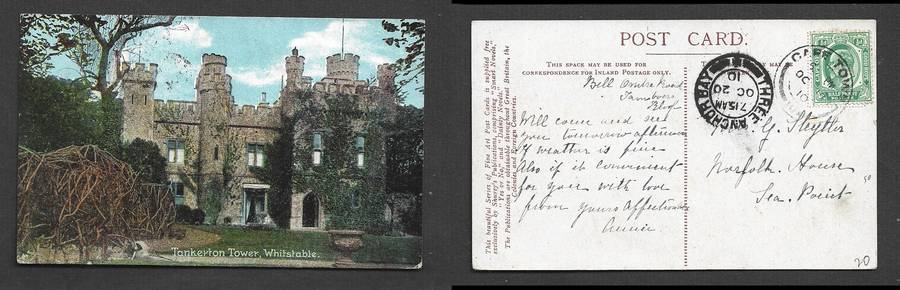 Tankerton Tower, Whitstable.
POST CARD.
THIS SPACE MAY BE USED FOR
CORRESPONDENCE FOR INLAND POSTAGE ONLY.
This beautiful Series of Fine Art Post Cards is supplied free
exclusively by Shurey's Publications, comprising "Smart Novels,"
"Yes or No," and "Dainty Novels."
The Publications are obtainable throughout Great Britain, the
Colonies and Foreign Countries.
Will come and see
you tomorrow afternoon
if weather is fine
Also if it convenient
for you with love
from yours Affectionate
Annie
G. Steytler
Norfolk House
Sea Point
HALF PENNY
THREE ANCHOR BAY
OC 20
10
CAPE TOWN
20